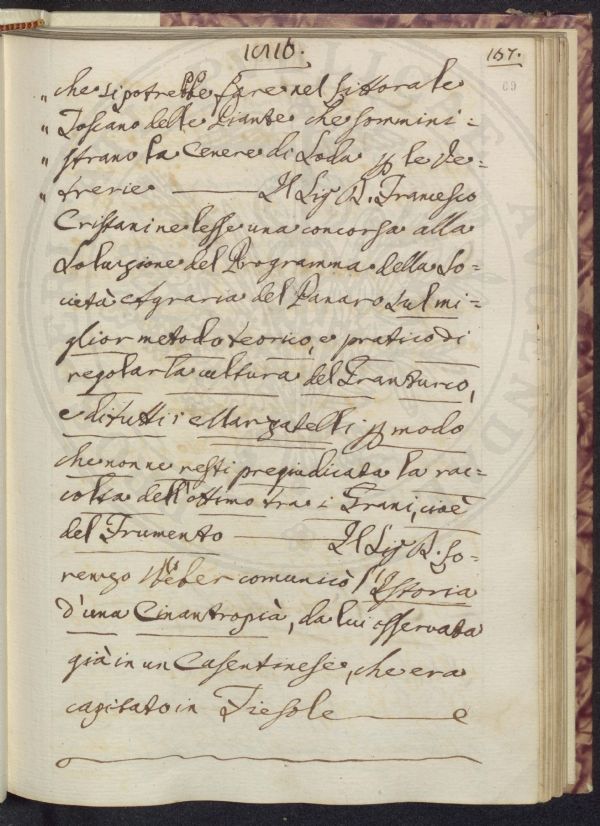 157.
69
" che si potrebbe fare nel Littorale
" Toscano delle Piante che sommini=
" strano la Cenere di Soda p le Ve=
" trerie ——— Il Sig D. Francesco
Cristani ne lesse una concorsa alla
Soluzione del Programma della So=
cietà Agraria del Panaro Sul mi=
glior metodo teorico, e pratico di
regolar la cultura del Granturco,
e di tutti i Marzatelli p modo
che non ne resti pregiudicata la rac=
colta dell'ottimo tra i Grani, cioè
del Frumento ——— Il Sig D. Lo=
renzo Weber comunicò l'Istoria
d'una Cinantropìa, da lui osservata
già in un Casentinese, che era
capitato in Fiesole ——— e